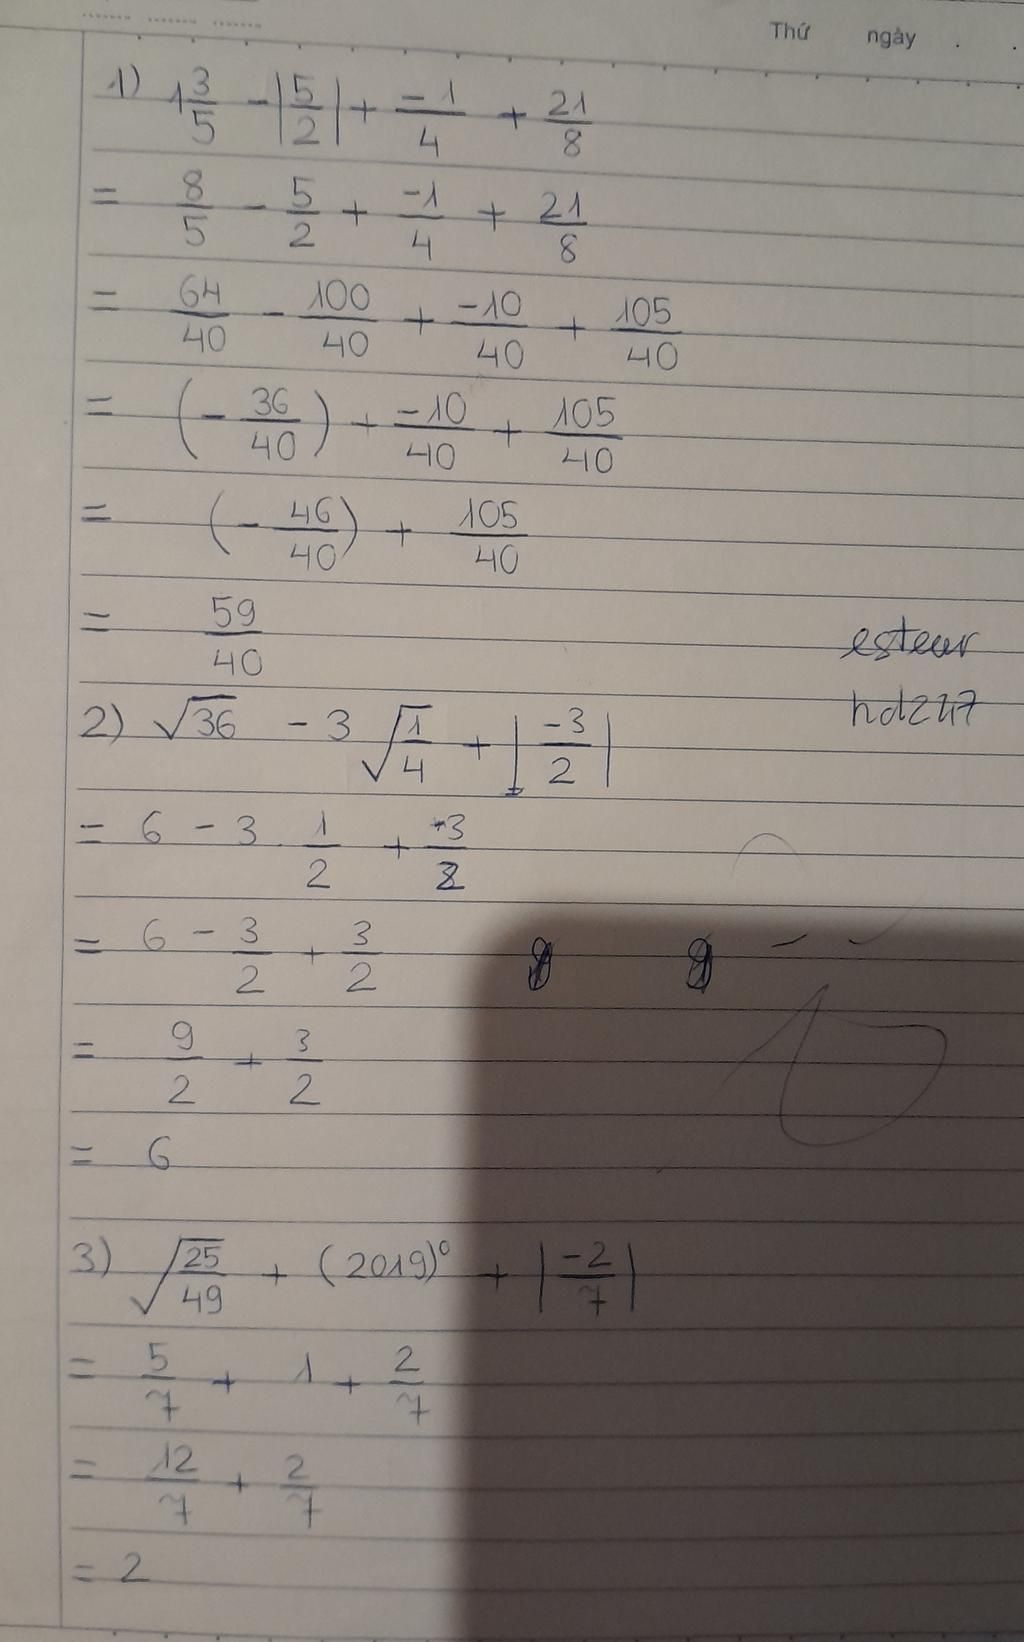 Thứ ngày . .
1) 1 3/5 - |5/2| + -1/4 + 21/8
= 8/5 - 5/2 + -1/4 + 21/8
= 64/40 - 100/40 + -10/40 + 105/40
= (- 36/40) + -10/40 + 105/40
= (- 46/40) + 105/40
= 59/40
esteur
hd247
2) √36 - 3 √1/4 + |-3/2|
= 6 - 3 . 1/2 + 3/2
= 6 - 3/2 + 3/2
= 9/2 + 3/2
= 6
3) √25/49 + (2019)⁰ + |-2/7|
= 5/7 + 1 + 2/7
= 12/7 + 2/7
= 2